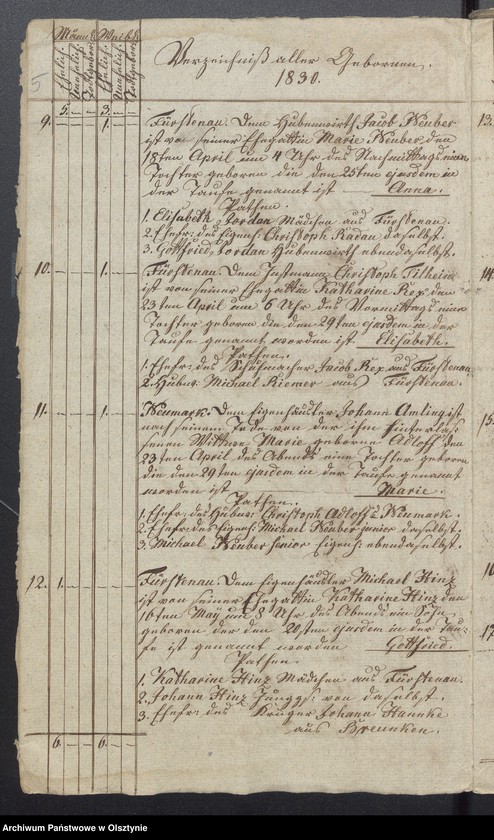 Männl. Weibl.
Ehelich. Unehelich. Todtgebor. Ehelich. Unehelich. Todtgebor.
5
Verzeichniß aller Gebornen.
1830.
5. — — 3. — —
9. — — — 1. — — Fürstenau. Dem Hubenwirth Jacob Neuber
ist von seiner Ehegattin Marie Neuber den
18ten April um 4 Uhr des Nachmittags eine
Tochter geboren die den 25ten ejusdem in
der Taufe genannt ist — Anna.
Pathen.
1. Elisabeth Jordan Mädchen aus Fürstenau.
2. Ehefr: des Eigenk: Christoph Radau daselbst.
3. Gottfried Jordan Hubenwirth ebendaselbst.
10. — — — 1. — — Fürstenau. Dem Instmann Christoph Tilheim
ist von seiner Ehegattin Katharine Rex den
23ten April um 6 Uhr des Vormittags eine
Tochter geboren die den 29ten ejusdem in der
Taufe genannt worden ist Elisabeth.
Pathen.
1. Ehefr: des Schumacher Jacob Rex aus Fürstenau.
2. Hubw: Michael Riemer aus Fürstenau.
11. — — — 1. — — Neumark. Dem Eigenkäthner Johann Amling ist
nach seinem Tode von der ihm hinterlas
senen Wittwe Marie geborne Adloff den
23ten April des Abends eine Tochter geboren
die den 29ten ejusdem in der Taufe genannt
worden ist Marie.
Pathen.
1. Ehefr: des Hubw: Christoph Adloff a Neumark.
2. Ehefr: des Eigenk: Michael Neuber junior daselbst.
3. Michael Neuber senior Eigenk: ebendaselbst.
12. 1. — — — — — Fürstenau. Dem Eigenkäthner Michael Hinz
ist von seiner Ehegattin Katharine Hinz den
16ten May um 8 Uhr des Abends ein Sohn
geboren der den 20sten ejusdem in der Tau-
fe ist genannt worden Gottfried.
Pathen.
1. Katharine Hinz Mädchen aus Fürstenau.
2. Johann Hinz Junggs: von daselbst.
3. Ehefr: des Krüger Johann Hannke
aus Breunken.
6. — — 6. — —
13.
14.
15.
16
17.
Archiwum Państwowe w Olsztynie